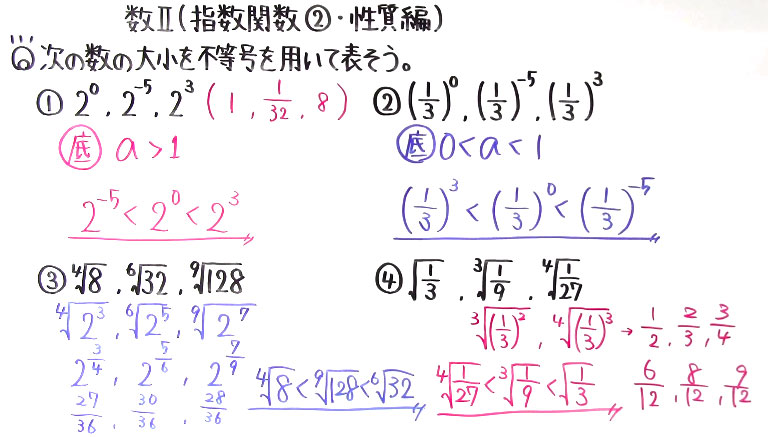 数Ⅱ(指数関数②・性質編)
Q 次の数の大小を不等号を用いて表そう。
① 2⁰, 2⁻⁵, 2³ (1, 1/32, 8)
底 a > 1
2⁻⁵ < 2⁰ < 2³
② (1/3)⁰, (1/3)⁻⁵, (1/3)³
底 0 < a < 1
(1/3)³ < (1/3)⁰ < (1/3)⁻⁵
③ ⁴√8, ⁶√32, ⁹√128
⁴√2³, ⁶√2⁵, ⁹√2⁷
2^(3/4), 2^(5/6), 2^(7/9)
27/36, 30/36, 28/36
⁴√8 < ⁹√128 < ⁶√32
④ √(1/3), ³√(1/9), ⁴√(1/27)
³√(1/3)², ⁴√(1/3)³ → 1/2, 2/3, 3/4
6/12, 8/12, 9/12
⁴√(1/27) < ³√(1/9) < √(1/3)